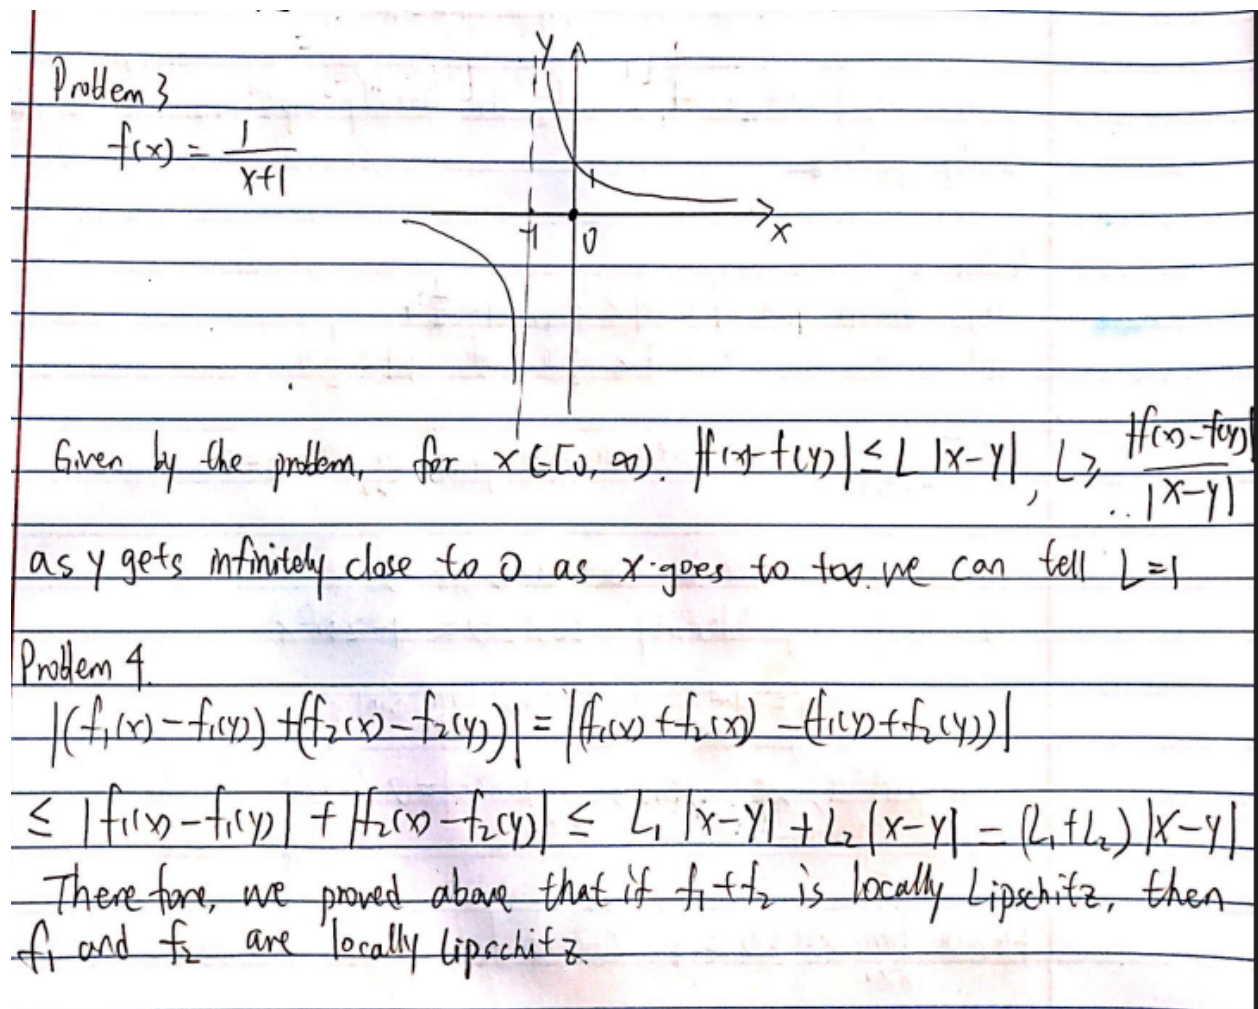 Problem 3
f(x) = 1/(x+1)
y
1
-1 0 x
Given by the problem, for x ∈ [0, ∞). |f(x)-f(y)| ≤ L |x-y|, L ≥ |f(x)-f(y)|/|x-y|
as y gets infinitely close to 0 as x goes to +∞. we can tell L=1
Problem 4.
|(f₁(x) - f₁(y)) + (f₂(x) - f₂(y))| = |(f₁(x) + f₂(x)) - (f₁(y) + f₂(y))|
≤ |f₁(x) - f₁(y)| + |f₂(x) - f₂(y)| ≤ L₁ |x-y| + L₂ |x-y| = (L₁+L₂) |x-y|
Therefore, we proved above that if f₁+f₂ is locally Lipschitz, then
f₁ and f₂ are locally Lipschitz.